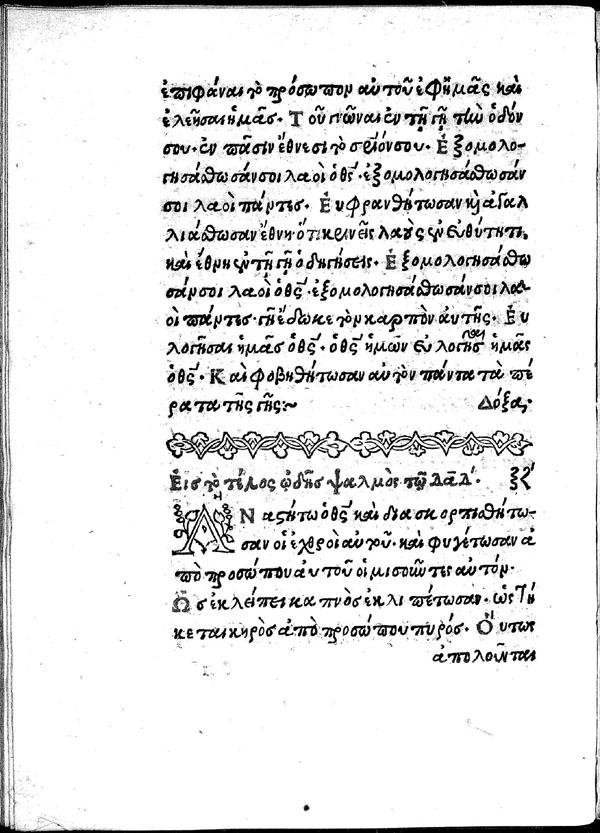 ἐπιφάναι τὸ πρόσωπον αὐτοῦ ἐφ' ἡμᾶς καὶ
ἐλεῆσαι ἡμᾶς. Τοῦ γνῶναι ἐν τῇ γῇ τὴν ὁδόν
σου. ἐν πᾶσιν ἔθνεσι τὸ σωτήριόν σου. Ἐξομολο-
γησάσθωσάν σοι λαοὶ ὁ θς̄. ἐξομολογησάσθωσάν
σοι λαοὶ πάντες. Εὐφρανθήτωσαν καὶ ἀγαλ
λιάσθωσαν ἔθνη. ὅτι κρινεῖς λαοὺς ἐν εὐθύτητι,
καὶ ἔθνη ἐν τῇ γῇ ὁδηγήσεις. Ἐξομολογησάσθω
σάν σοι λαοὶ ὁ θς̄. ἐξομολογησάσθωσάν σοι λα-
οὶ πάντες. γῆ ἔδωκε τὸν καρπὸν αὐτῆς. Εὐ
λογήσαι ἡμᾶς ὁ θς̄. ὁ θς̄ ἡμῶν εὐλογήσαι ἡμᾶς
ὁ θς̄. Καὶ φοβηθήτωσαν αὐτὸν πάντα τὰ πέ
ρατα τῆς γῆς:~ Δόξα;
Εἰς τὸ τέλος ᾠδῆς ψαλμὸς τῷ Δᾱδ. ξζ'
ΑΝαστήτω ὁ θς̄ καὶ διασκορπισθήτω-
σαν οἱ ἐχθροὶ αὐτοῦ. καὶ φυγέτωσαν ἀ
πὸ προσώπου αὐτοῦ οἱ μισοῦντες αὐτόν.
Ὡς ἐκλείπει καπνὸς ἐκλιπέτωσαν. ὡς τή
κεται κηρὸς ἀπὸ προσώπου πυρός. Οὕτως
ἀπολοῦνται